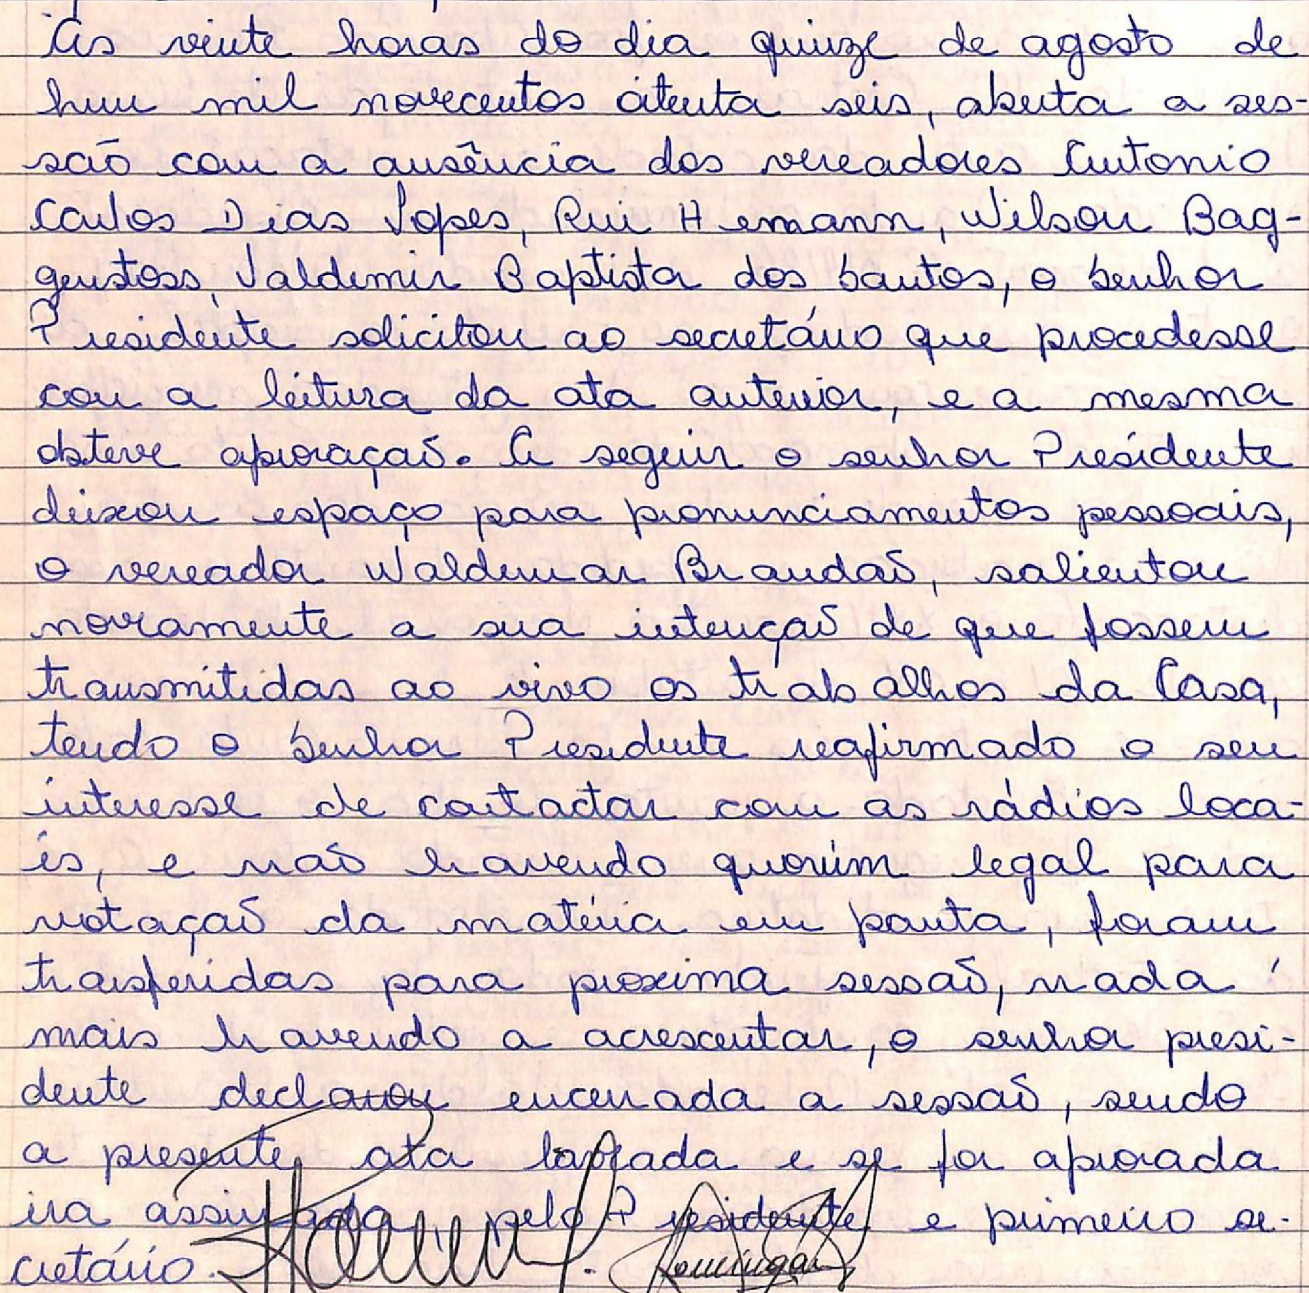 Às vinte horas do dia quinze de agosto de
hum mil novecentos oitenta seis, aberta a ses-
são com a ausência dos vereadores Antonio
Carlos Dias Lopes, Rui Hemann, Wilson Bag-
genstoss, Valdemir Baptista dos Santos, o Senhor
Presidente solicitou ao secretário que procedesse
com a leitura da ata anterior, e a mesma
obteve aprovação. A seguir o senhor Presidente
deixou espaço para pronunciamentos pessoais,
o vereador Waldemar Brandão, salientou
novamente a sua intenção de que fossem
transmitidas ao vivo os trabalhos da Casa,
tendo o Senhor Presidente reafirmado o seu
interesse de contactar com as rádios loca-
is, e não havendo quorúm legal para
votação da matéria em pauta, foram
trasferidas para proxima sessão, nada
mais havendo a acrescentar, o senhor presi-
dente declarou encerrada a sessão, sendo
a presente ata lavrada e se for aprovada
ira assinada, pelo Presidente e primeiro se-
cretário.